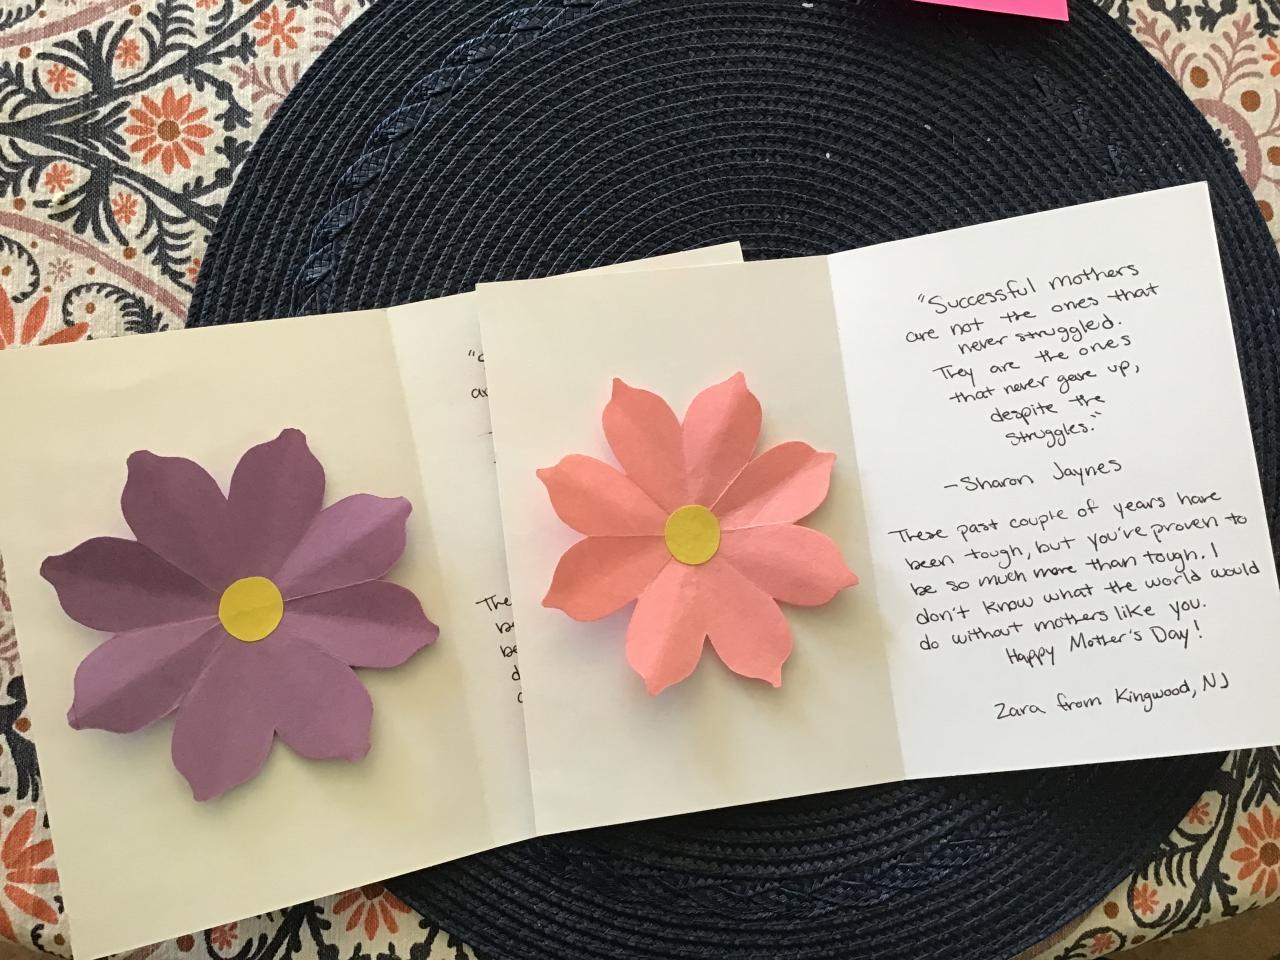 "Successful mothers
are not the ones that
never struggled.
They are the ones
that never gave up,
despite the
struggles."
-Sharon Jaynes
These past couple of years have
been tough, but you've proven to
be so much more than tough. I
don't know what the world would
do without mothers like you.
Happy Mother's Day!
Zara from Kingwood, NJ